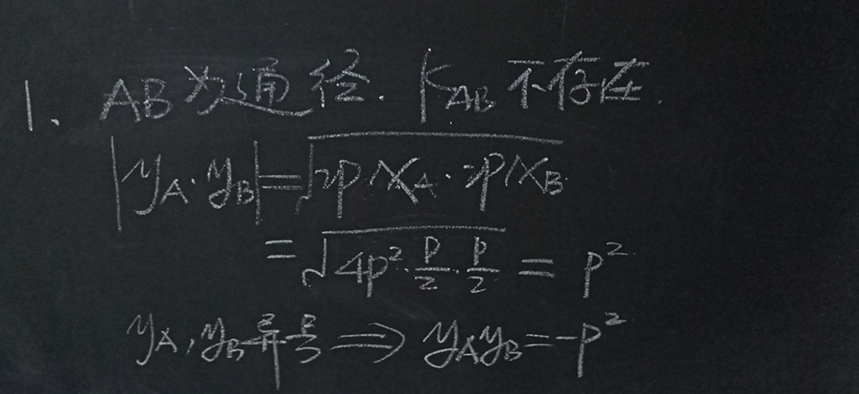 1、AB为通径. kAB不存在.
|yA·yB|=√(2pxA·2pxB)
=√(4p²·p/2·p/2)=p²
yA,yB异号⇒yAyB=-p²